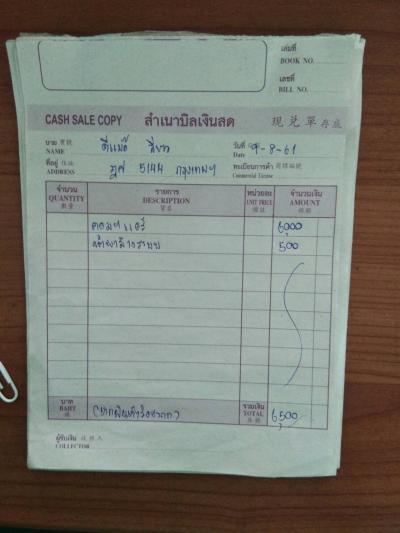 เล่มที่
BOOK NO.
เลขที่
BILL NO.
CASH SALE COPY สำเนาบิลเงินสด 現兌單存底
นาม 寶號
NAME
วันที่ 9-8-61
Date
ที่อยู่ 住址
ADDRESS 5144 กรุงเทพฯ
ทะเบียนการค้า 商標編號
Commercial License
จำนวน
QUANTITY
數量
รายการ
DESCRIPTION
貨名
หน่วยละ
UNIT PRICE
價目
จำนวนเงิน
AMOUNT
คอมฯแอร์ 6,000
500
บาท
BAHT
銖
รวมเงิน
TOTAL
6,500
ผู้รับเงิน 收錢人
COLLECTOR